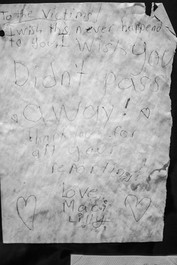 To the Victims
I wish this never happend
to you. I wish you
Didn't pass
away!
thank you for
all your
reporting
love,
Mars